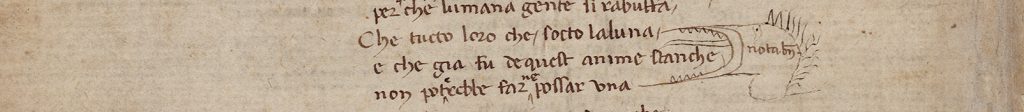 perche lumana gente si rabuffa,
Che tucto loro che, socto laluna,
e che gia fu dequest anime stanche notabn
non potrecbbe farne possar una